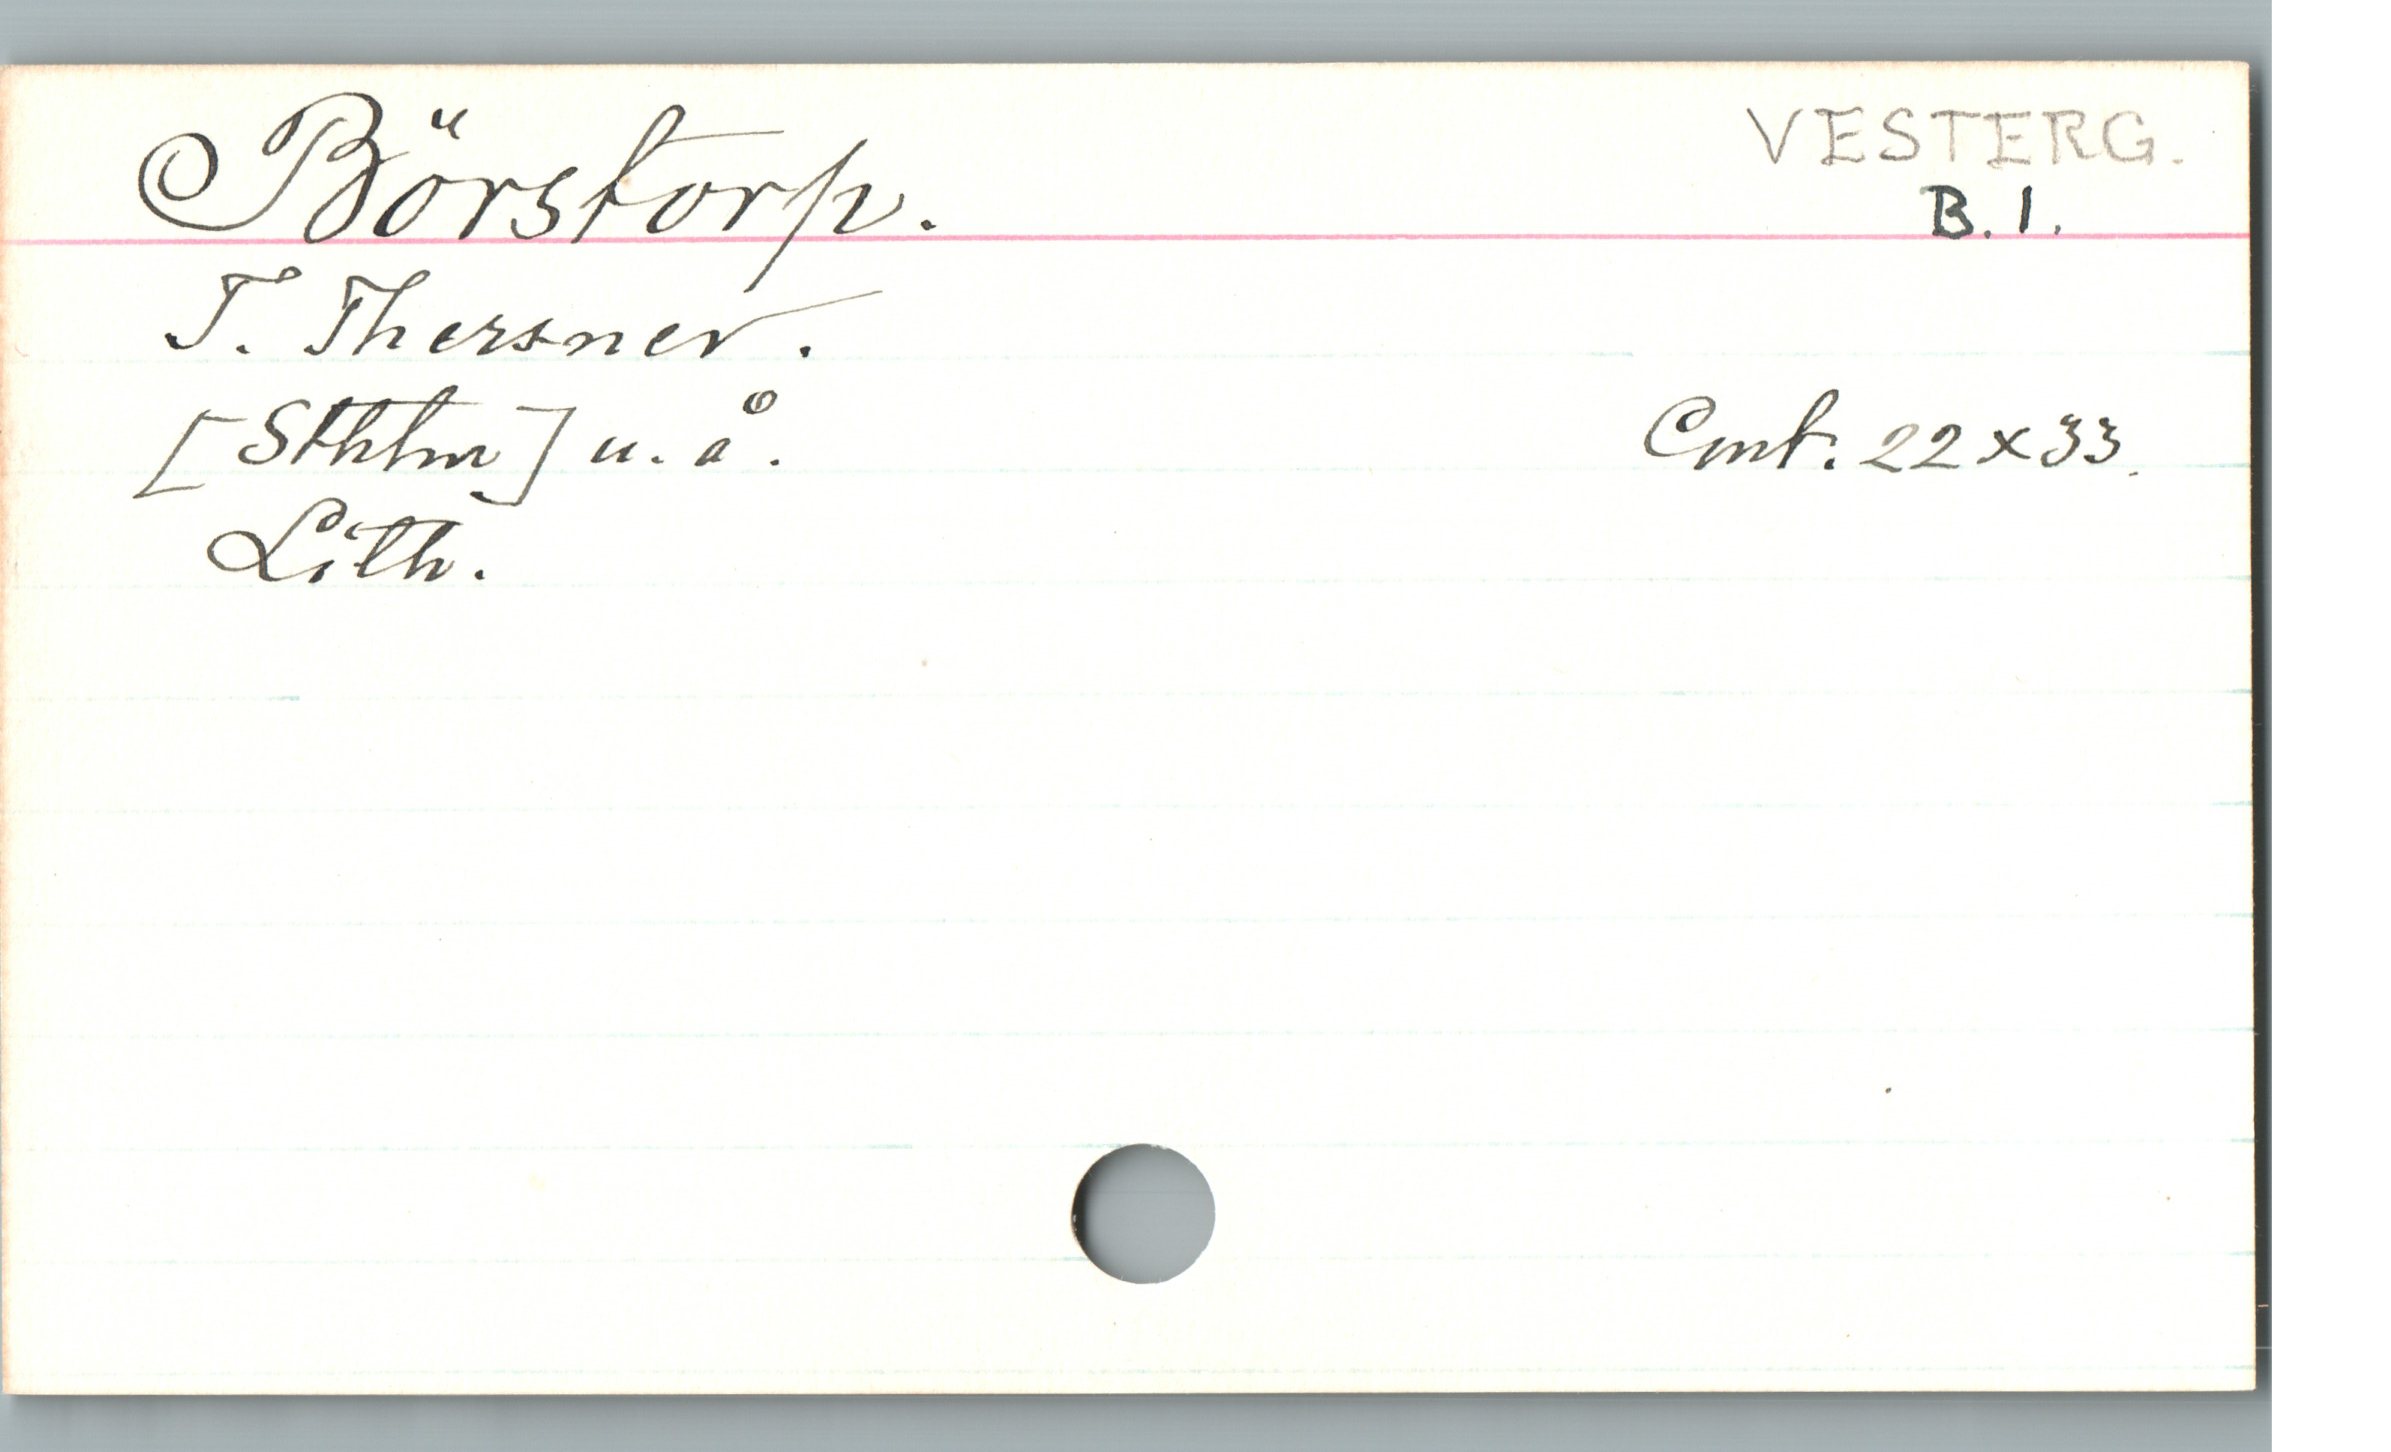 Börstorp.
VESTERG.
B. 1.
T. Thersner.
[Sthlm] u. å.
Cmt. 22 x 33.
Lith.